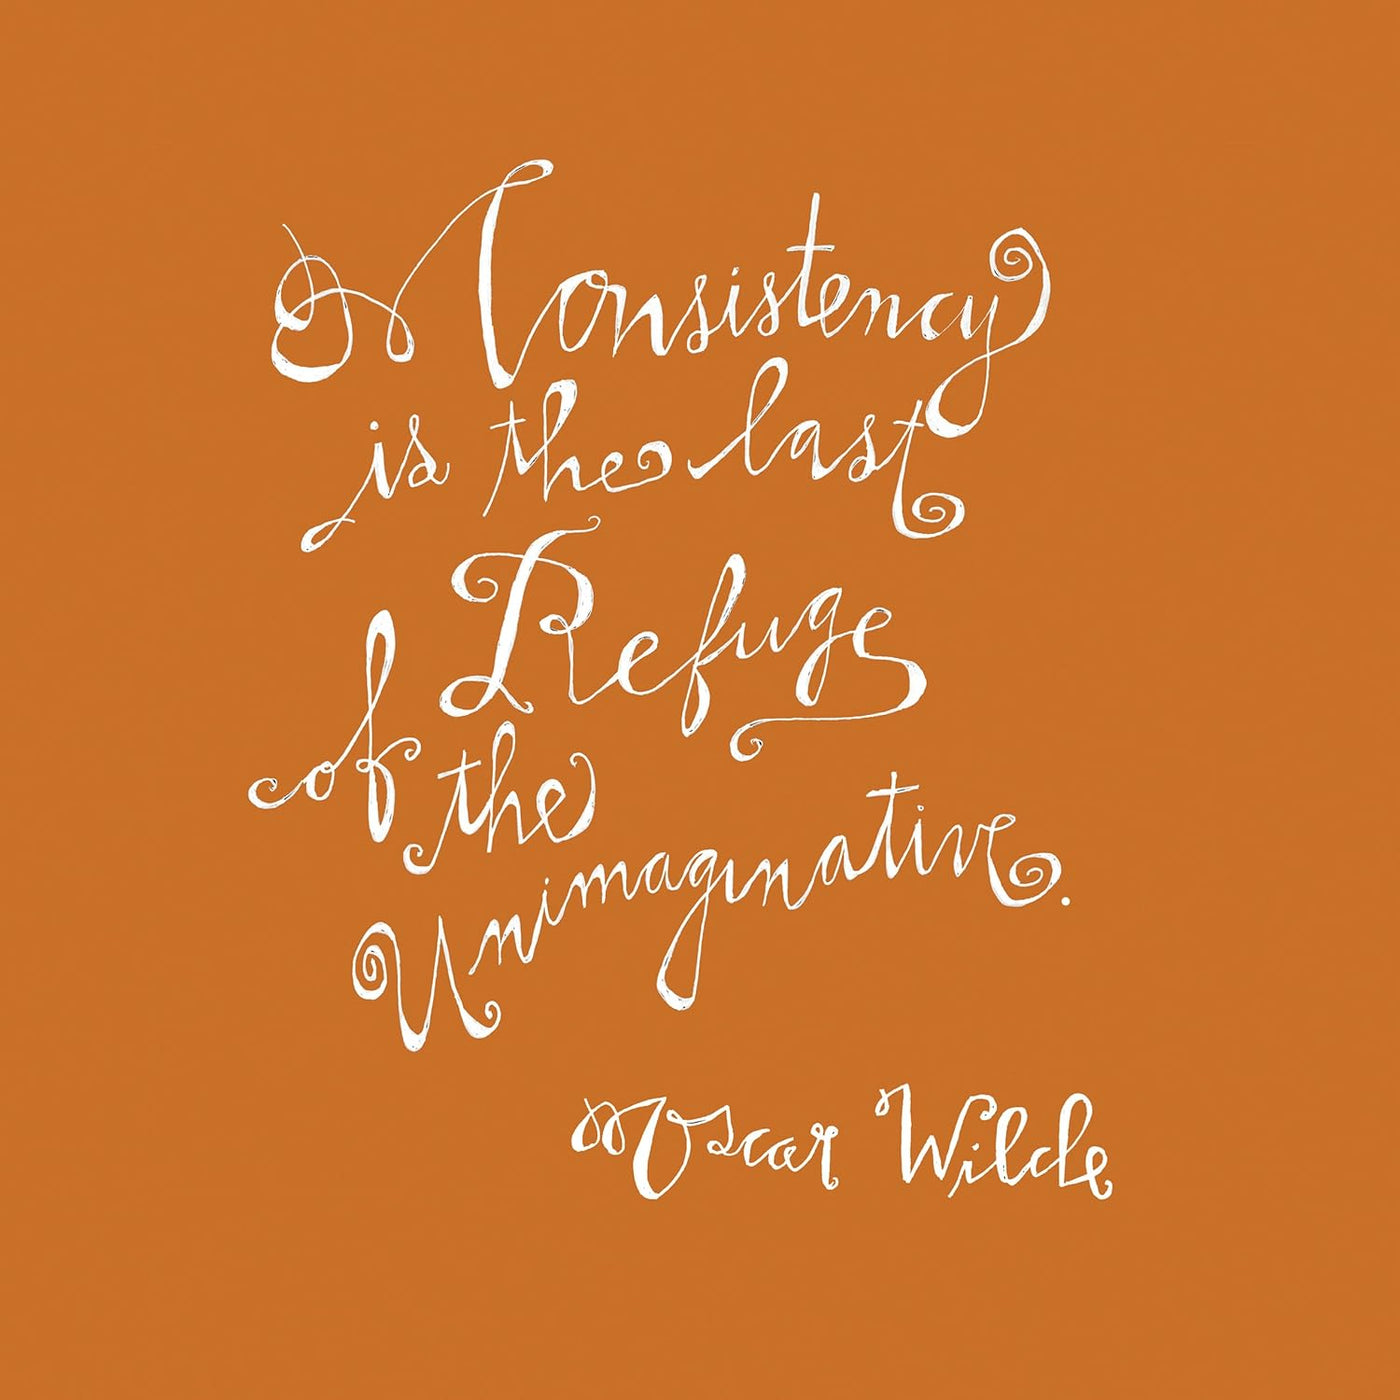 Consistency
is the last
Refuge
of the
Unimaginative.
Oscar Wilde